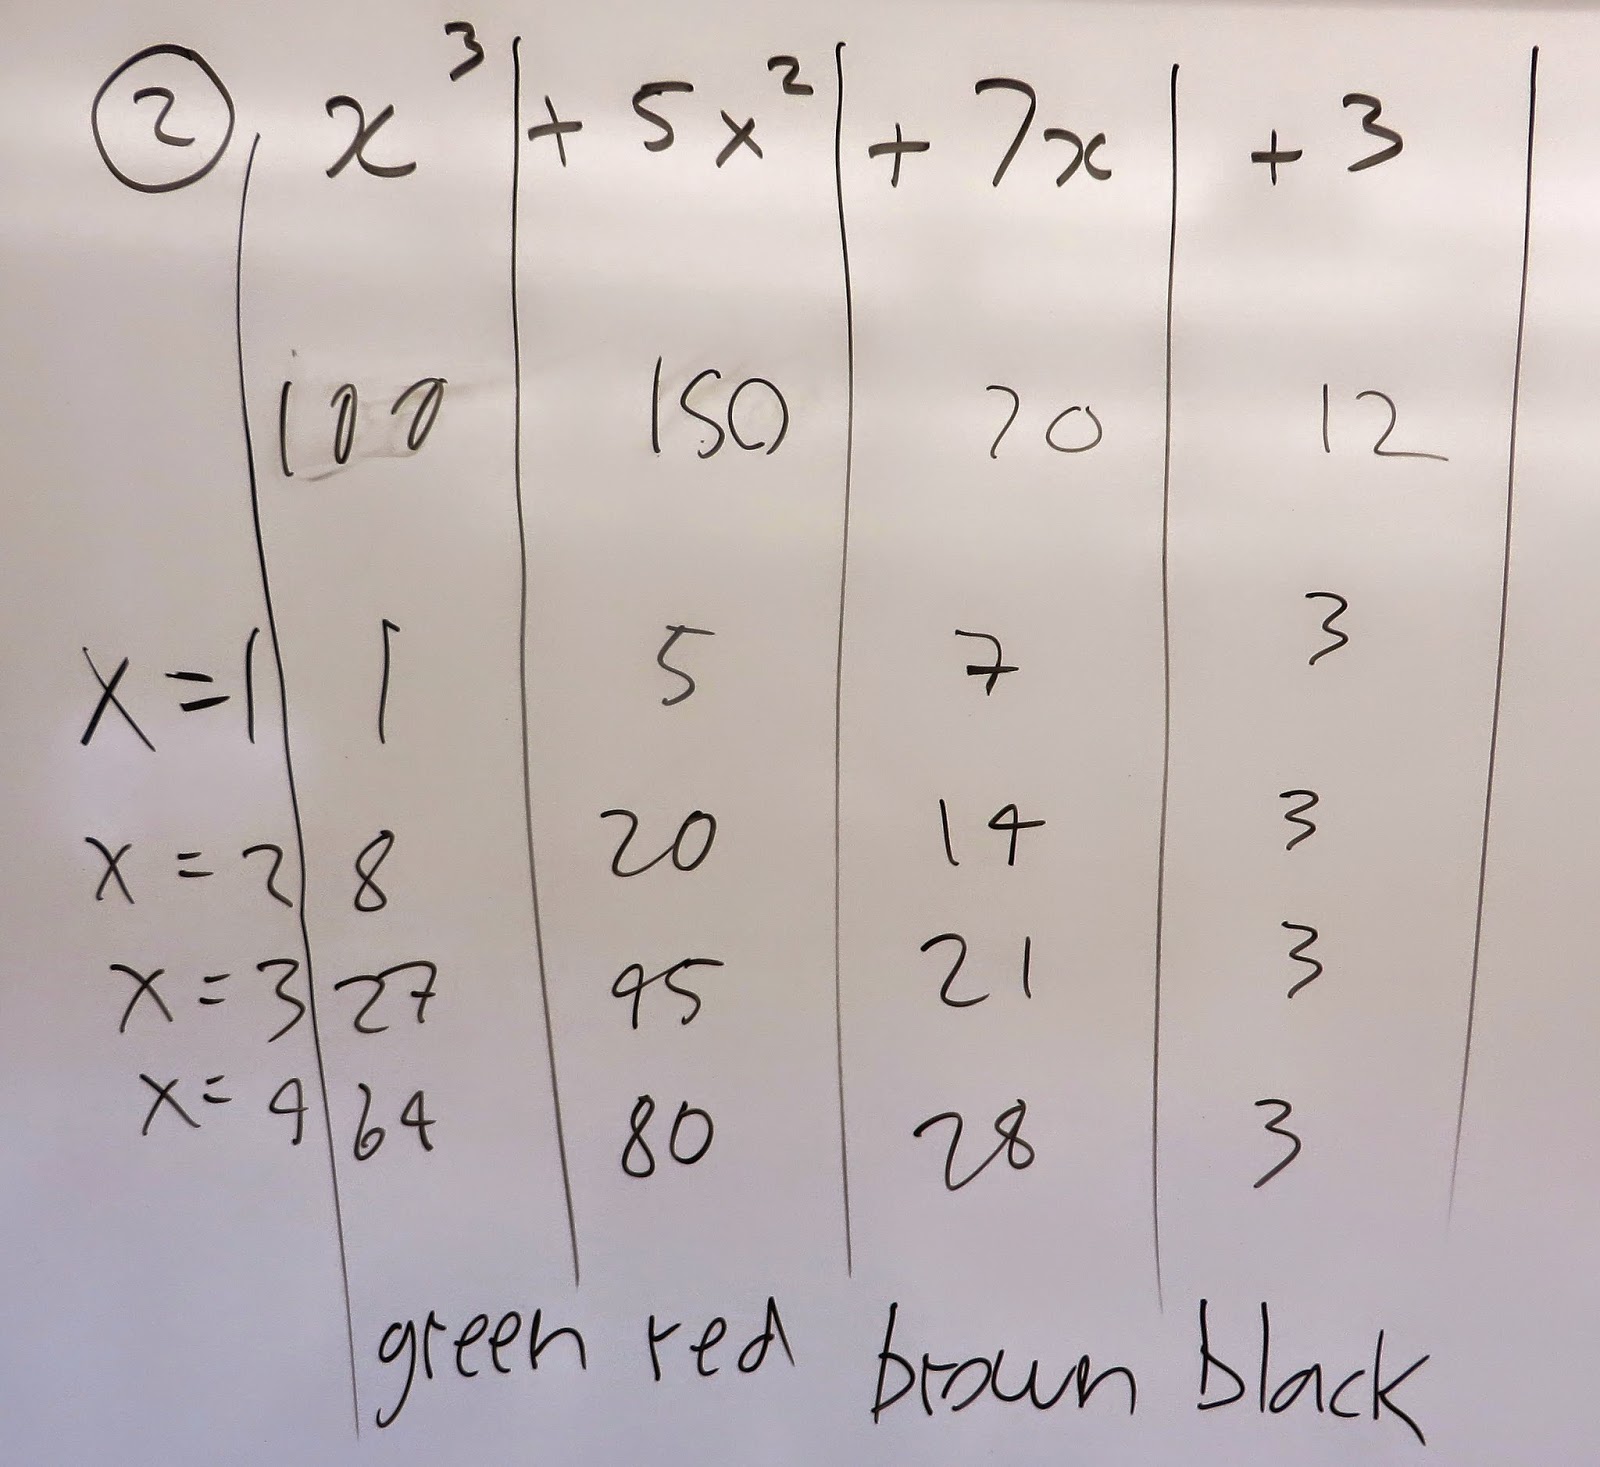 2 x³ + 5x² + 7x + 3
100 150 70 12
x = 1 1 5 7 3
x = 2 8 20 14 3
x = 3 27 45 21 3
x = 4 64 80 28 3
green red brown black